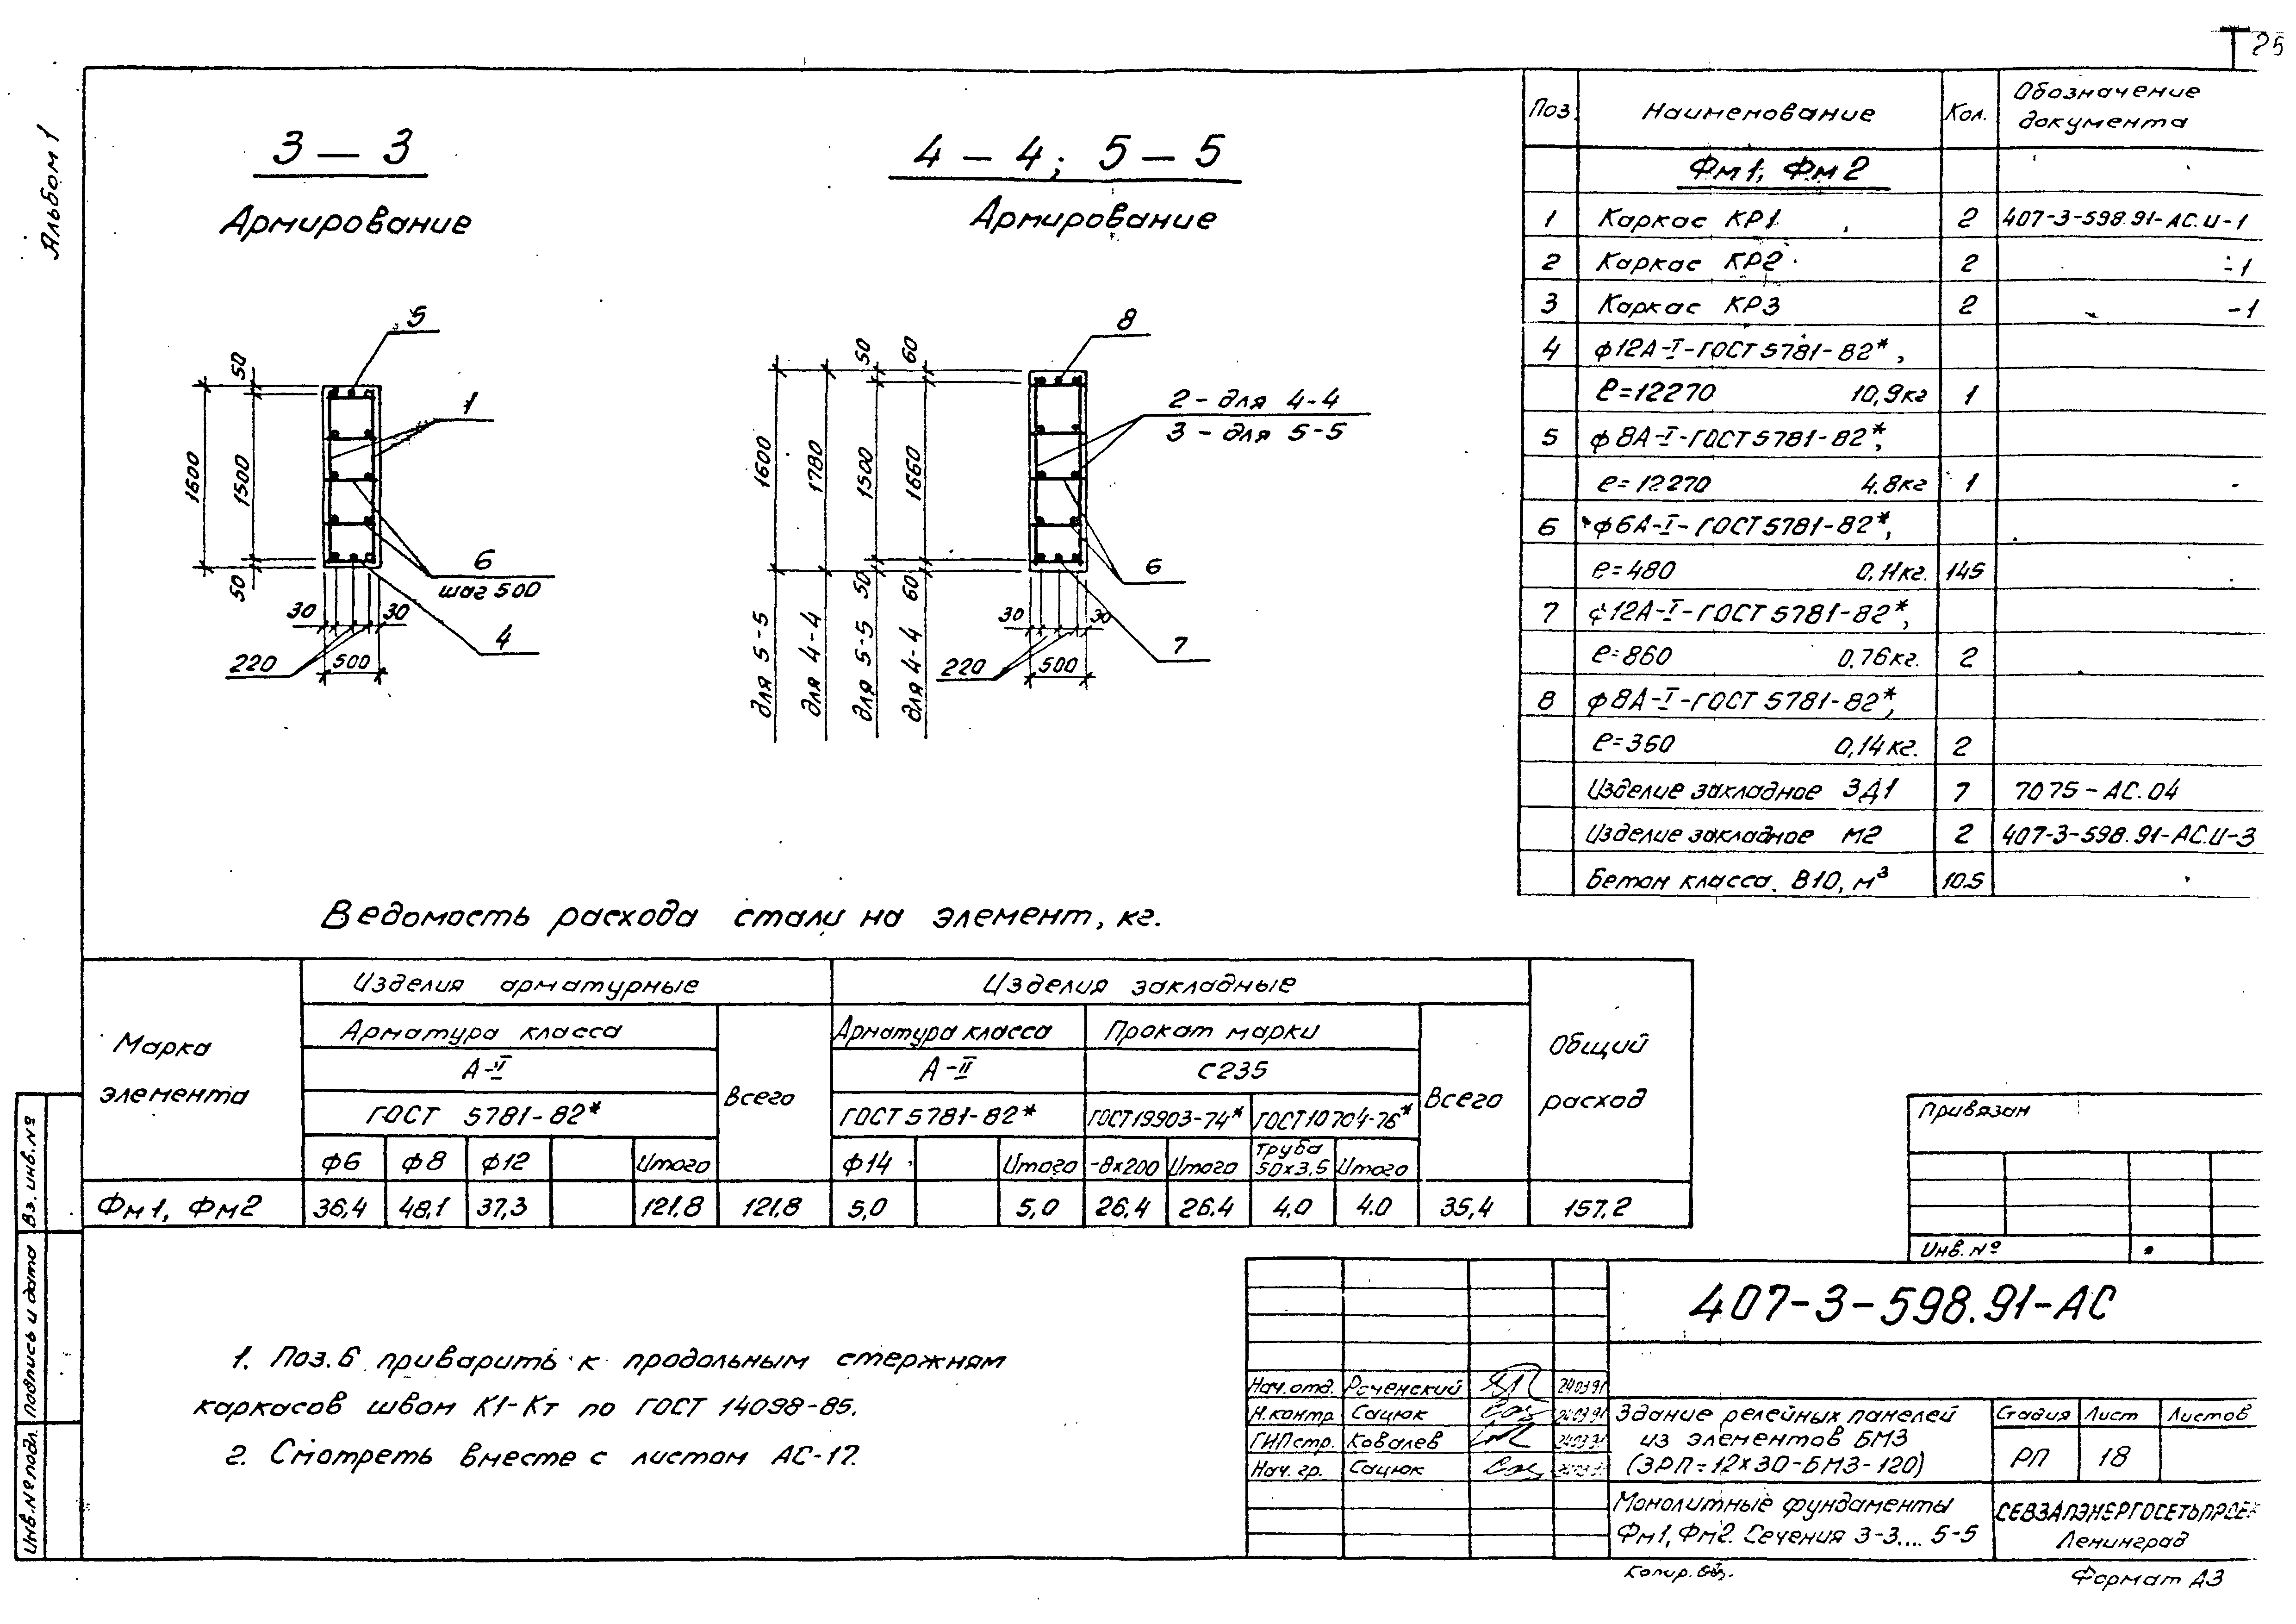 25
Альбом 1
3 – 3
Армирование
5
1
6
шаг 500
4
50
1600
1500
50
30
30
220
500
4 – 4; 5 – 5
Армирование
8
2 - для 4-4
3 - для 5-5
6
7
50
60
1600
1780
1500
1660
50
60
для 5-5
для 4-4
для 5-5
для 4-4
30
30
220
500
Поз. Наименование Кол. Обозначение документа
Фм1, Фм2
1 Каркас КР1 2 407-3-598.91-АС.И-1
2 Каркас КР2 2 -1
3 Каркас КР3 2 -1
4 ф12А-I-ГОСТ 5781-82*,
ℓ=12270 10,9кг 1
5 ф8А-I-ГОСТ 5781-82*,
ℓ=12270 4.8кг 1
6 ф6А-I-ГОСТ 5781-82*,
ℓ=480 0.11кг. 145
7 ф12А-I-ГОСТ 5781-82*,
ℓ=860 0.76кг. 2
8 ф8А-I-ГОСТ 5781-82*,
ℓ=350 0,14кг. 2
Изделие закладное ЗД1 7 7075-АС.04
Изделие закладное М2 2 407-3-598.91-АС.И-3
Бетон класса В10, м³ 10.5
Ведомость расхода стали на элемент, кг.
Марка элемента
Изделия арматурные Изделия закладные
Общий расход
Арматура класса Всего Арматура класса Прокат марки Всего
А-I А-II С235
ГОСТ 5781-82* ГОСТ 5781-82* ГОСТ19903-74* ГОСТ10704-76*
ф6 ф8 ф12 Итого ф14 Итого -8х200 Итого Труба 50х3,5 Итого
Фм1, Фм2 36,4 48,1 37,3 121.8 121.8 5,0 5,0 26.4 26.4 4.0 4.0 35,4 157.2
1. Поз.6 приварить к продольным стержням
каркасов швом К1-Кт по ГОСТ 14098-85.
2. Смотреть вместе с листом АС-17.
Вз. инв.№
Подпись и дата
Инв.№ подл.
Привязан
Инв.№
407-3-598.91-АС
Нач.отд. Роченский 240391
Н.контр Сацюк
ГИП стр. Ковалев
Нач. гр. Сацюк
Здание релейных панелей
из элементов БМЗ
(ЗРП-12х30-БМЗ-120)
Стадия Лист Листов
РП 18
Монолитные фундаменты
Фм1, Фм2. Сечения 3-3.... 5-5
СЕВЗАПЭНЕРГОСЕТЬПРОЕК
Ленинград
Копир.
Формат А3